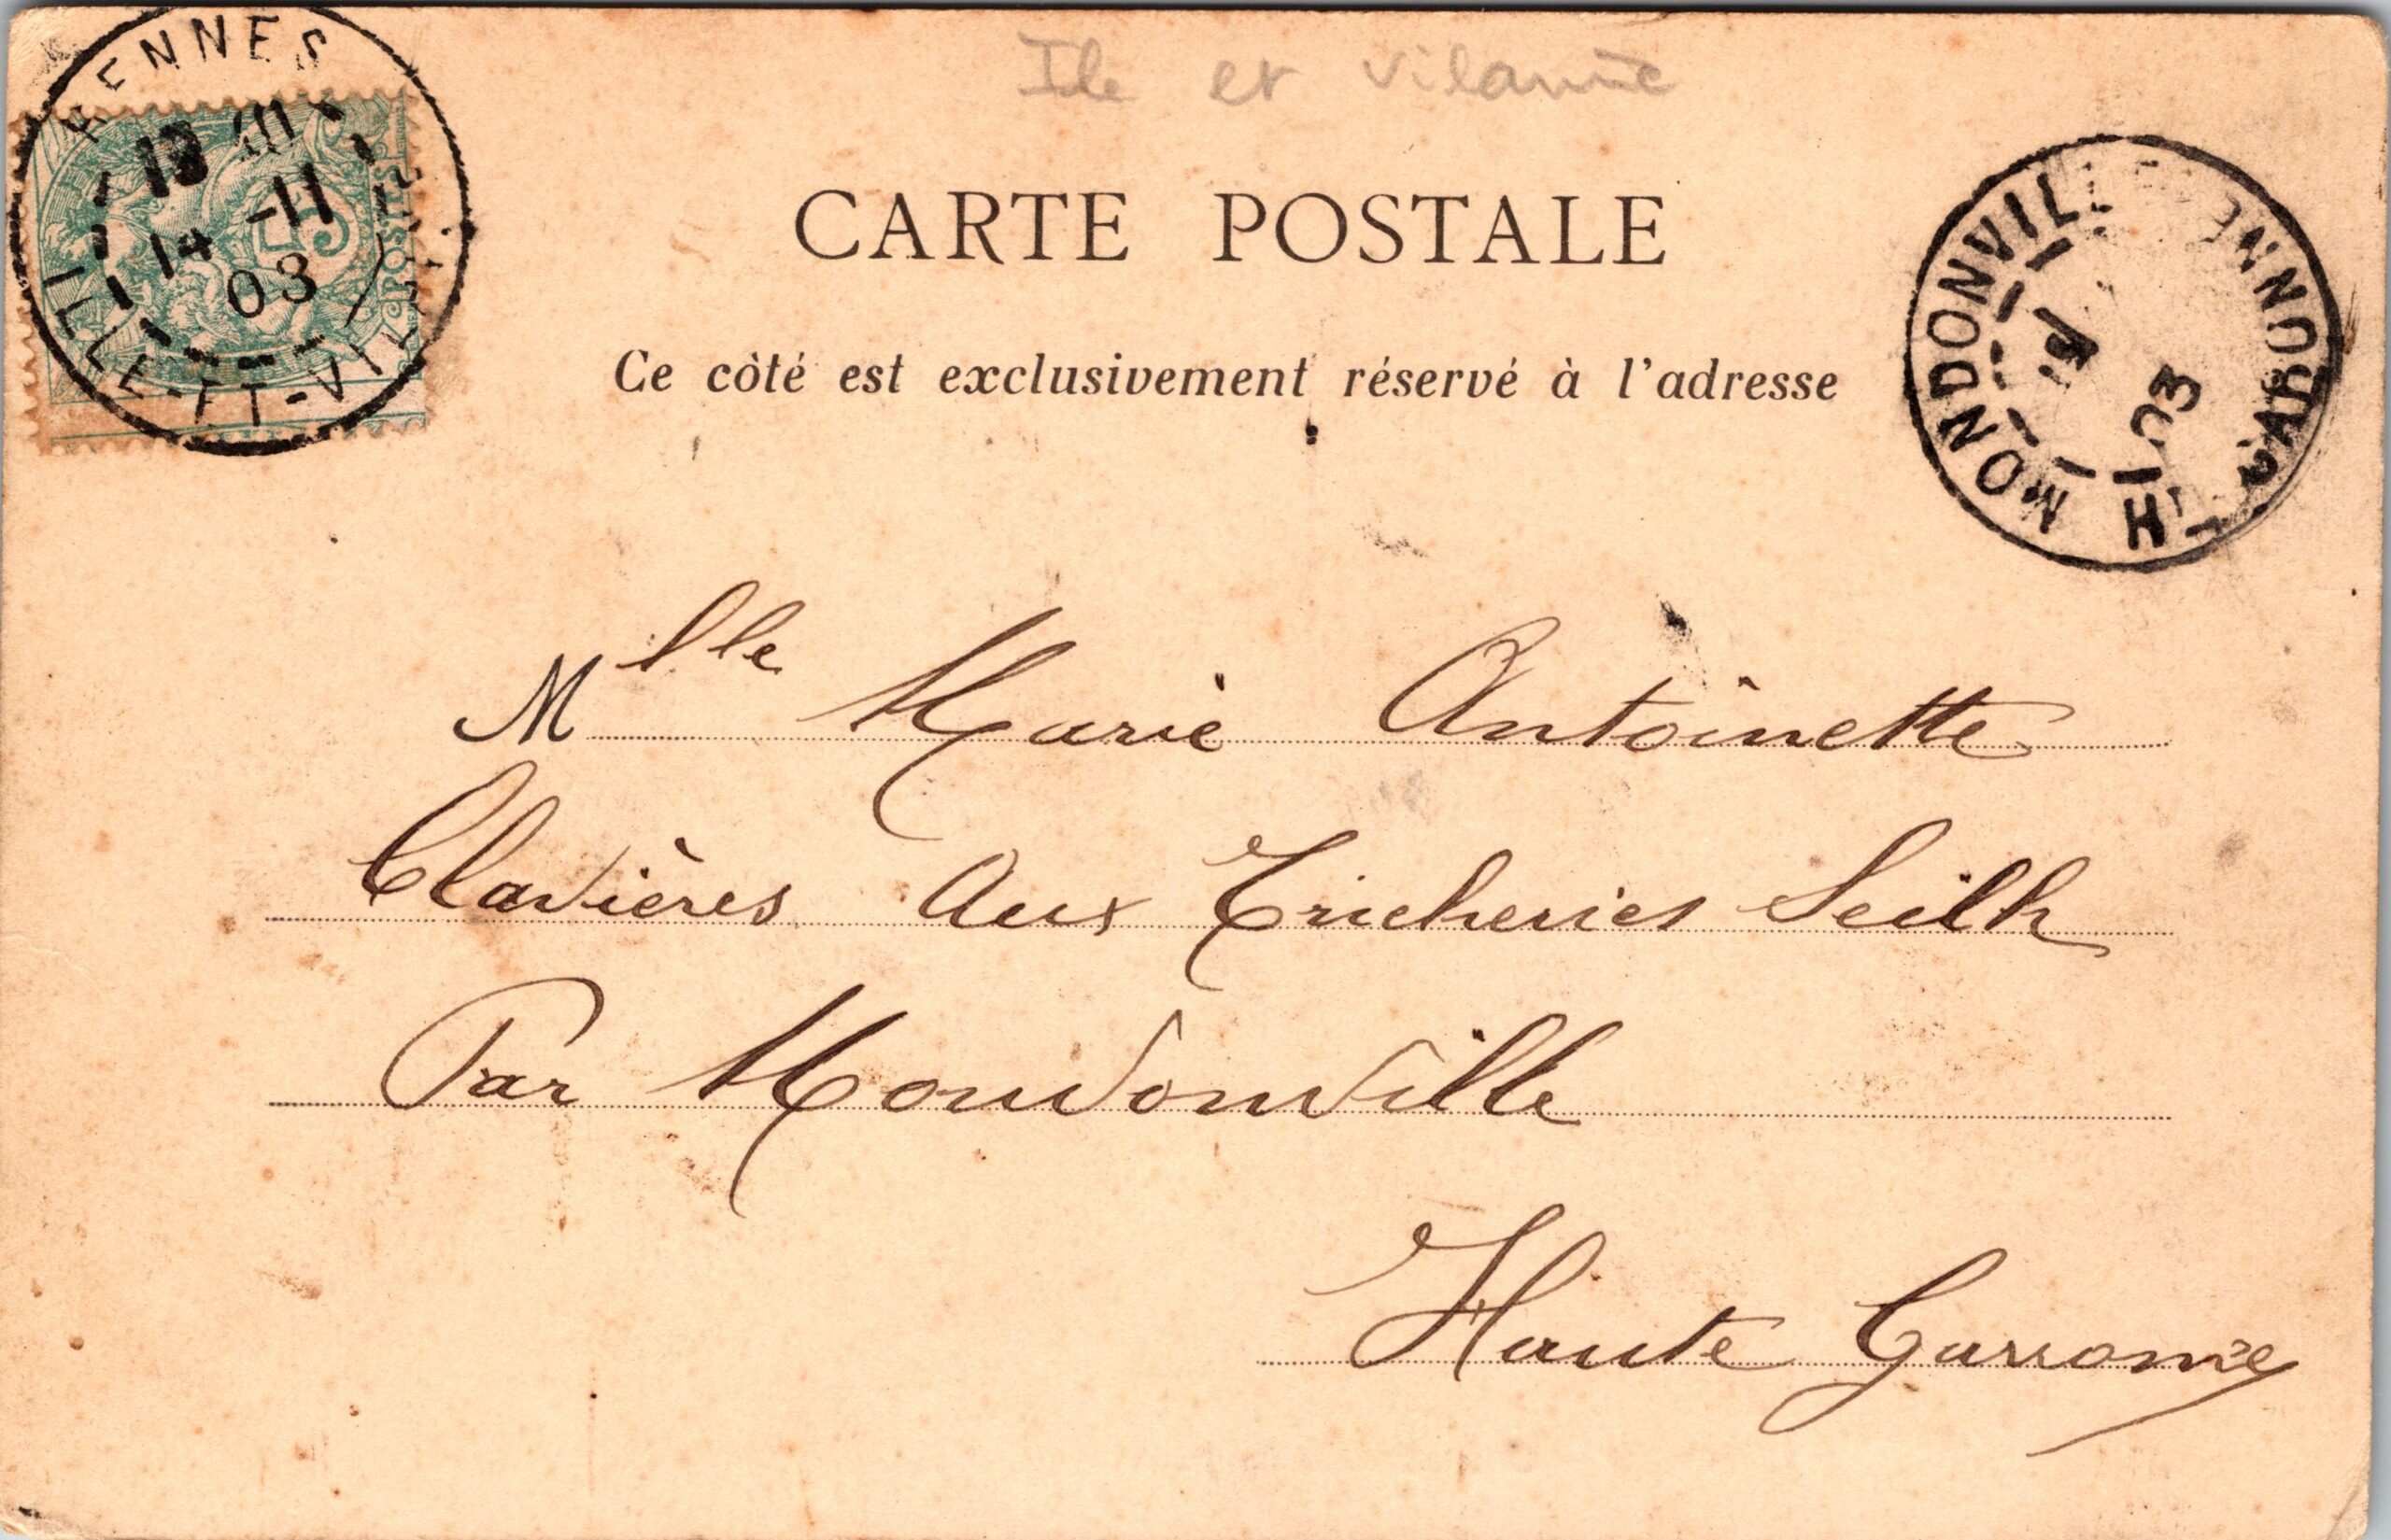 Ile et Vilaine
RENNES
14 -11
03
ILLE-ET-VIL
5
POSTES
CARTE POSTALE
Ce côté est exclusivement réservé à l'adresse
MONDONVILLE
03
HTE GARONNE
Mlle Marie Antoinette
Clavières Aux Tricheries Seilh
Par Mondonville
Haute Garronne